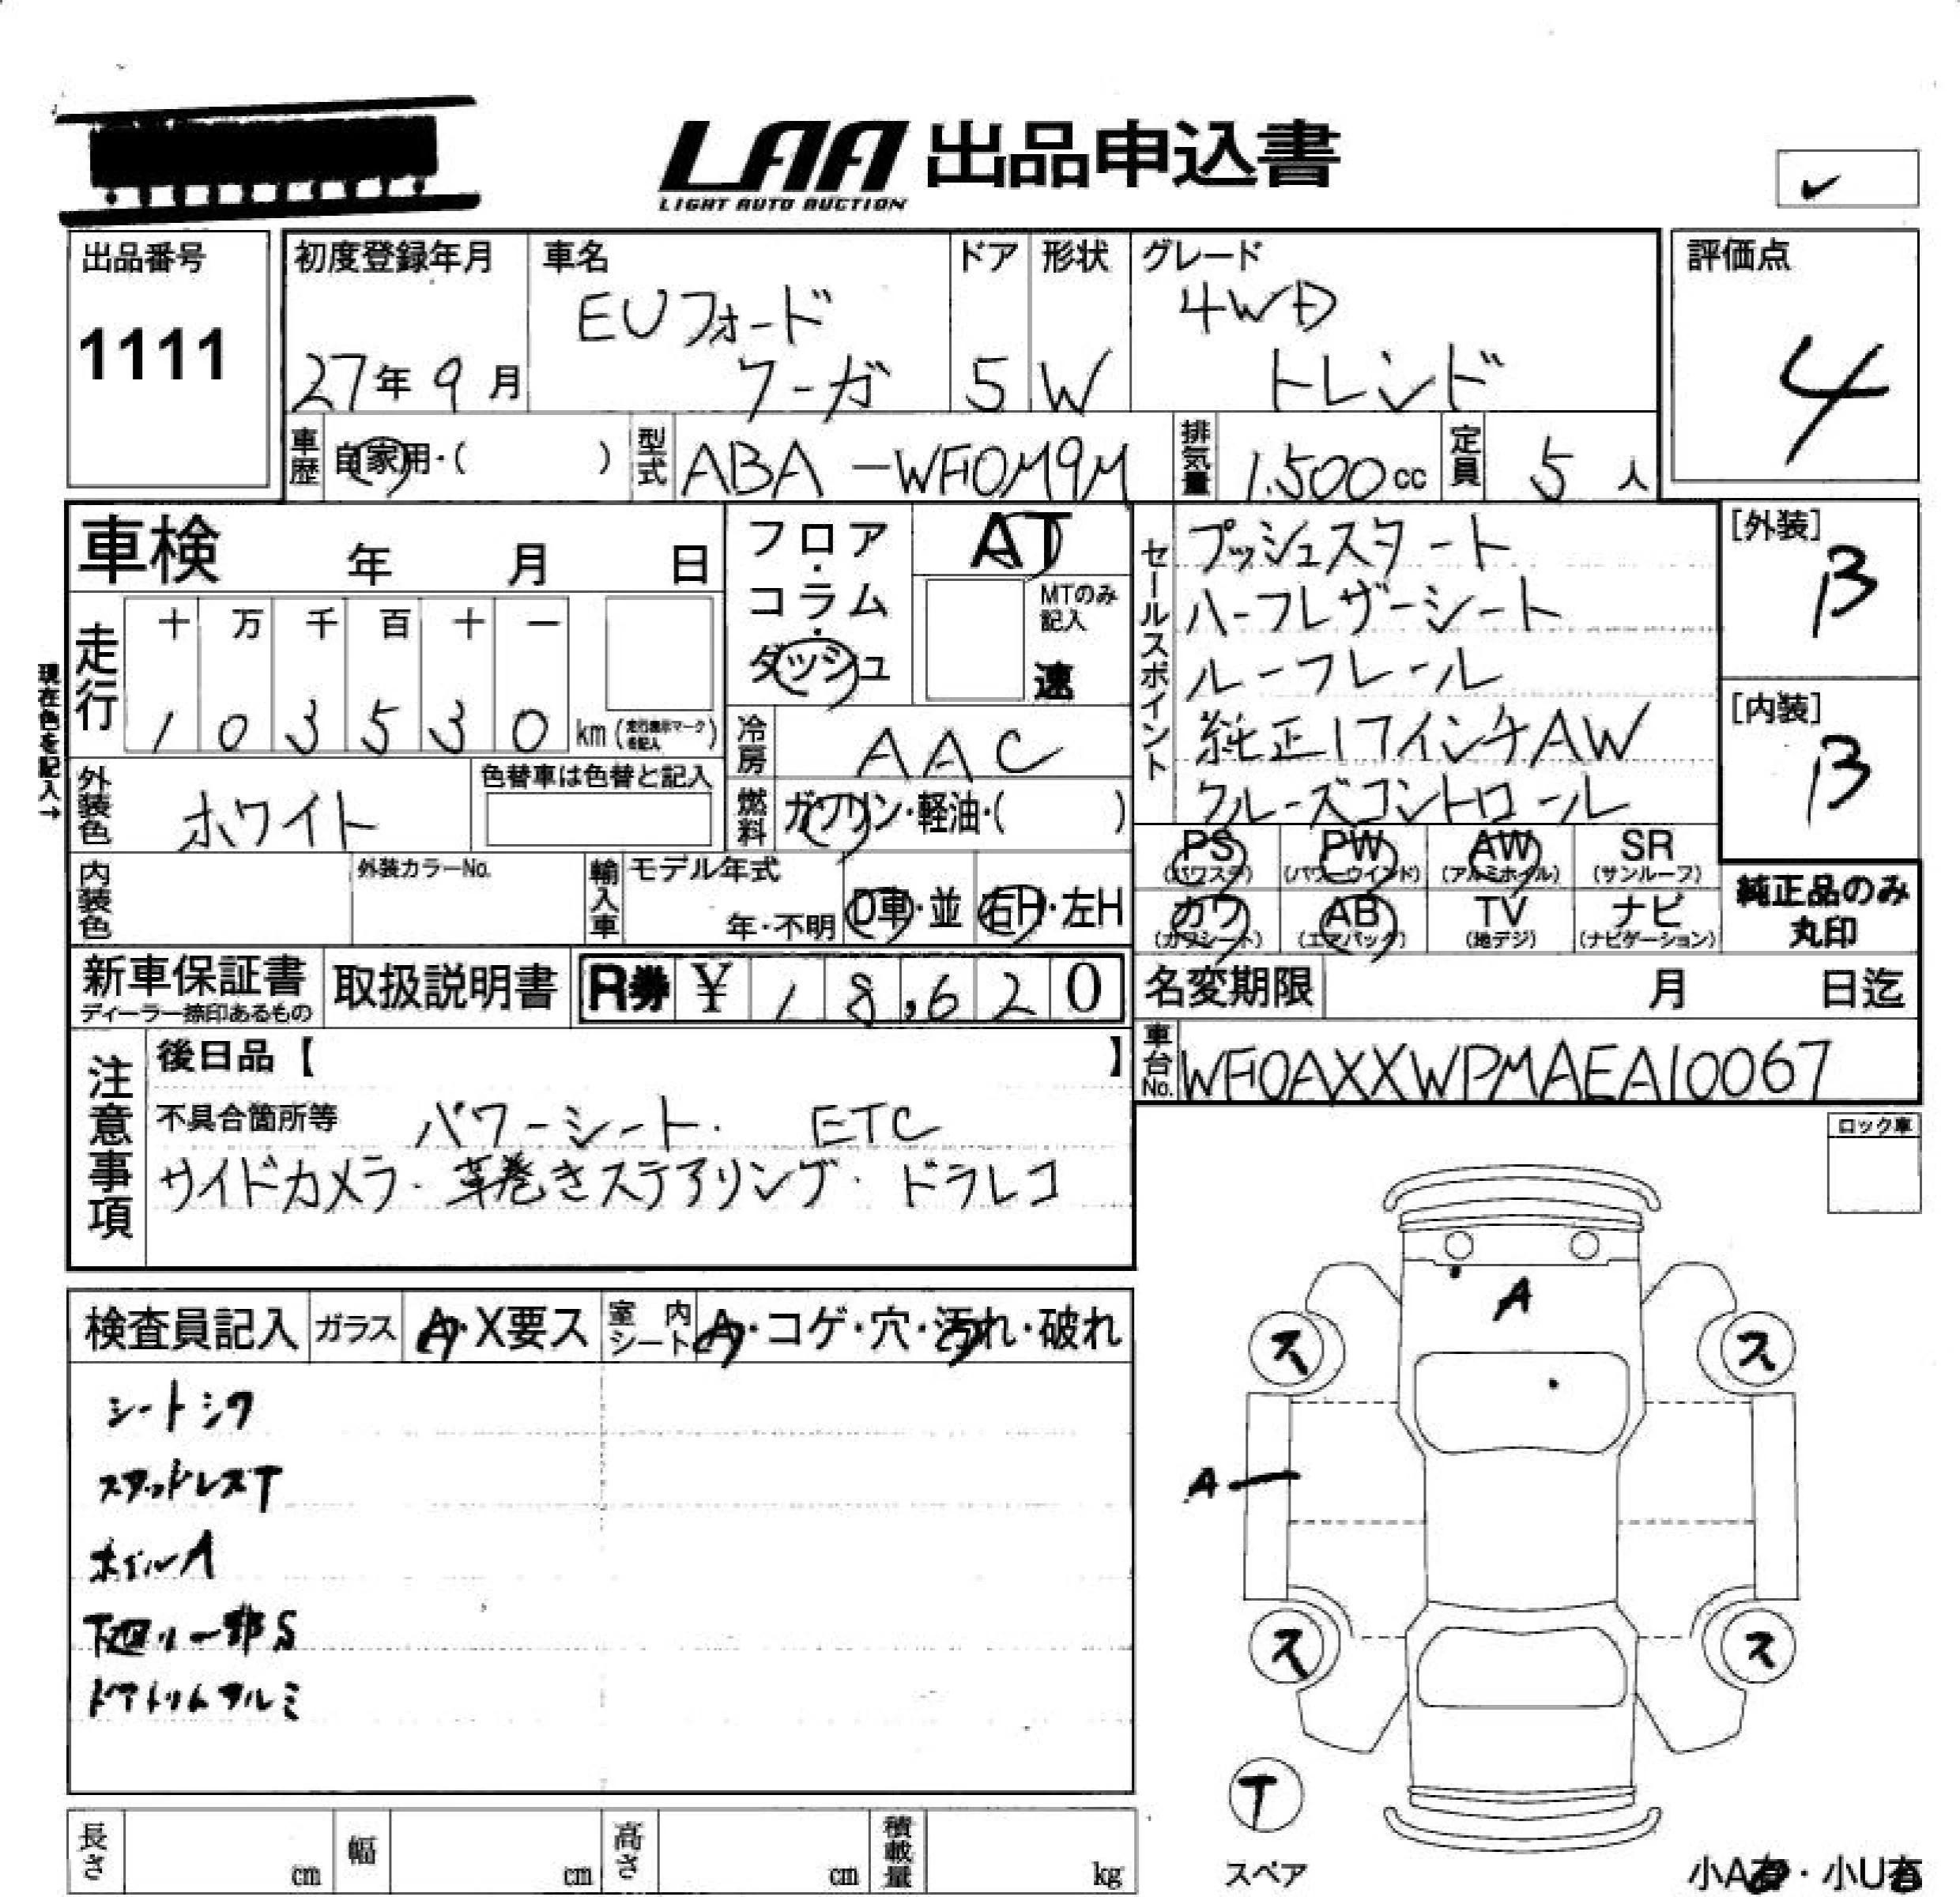 LAA 出品申込書
LIGHT AUTO AUCTION
✓
出品番号
1111
初度登録年月
27年 9月
車名
EUフォード
クーガ
ドア
5
形状
W
グレード
4WD
トレンド
評価点
4
車歴 自家用・( )
型式 ABA-WF0M9M
排気量 1.500cc
定員 5人
車検 年 月 日
フロア・コラム・ダッシュ
AT
MTのみ記入
速
セールスポイント
プッシュスタート
ハーフレザーシート
ルーフレール
純正17インチAW
クルーズコントロール
[外装]
B
[内装]
B
現在色を記入→
走行
十 万 千 百 十 一
1 0 3 5 3 0 km (走行表示マークを記入)
冷房 AAC
外装色 ホワイト
色替車は色替と記入
燃料 ガソリン・軽油・( )
PS (パワステ)
PW (パワーウインド)
AW (アルミホイル)
SR (サンルーフ)
カワ (カワシート)
AB (エアバック)
TV (地デジ)
ナビ (ナビゲーション)
純正品のみ
丸印
内装色
外装カラーNo.
輸入車 モデル年式
年・不明
D車・並
右H・左H
新車保証書
ディーラー捺印あるもの
取扱説明書
R券 ¥ 18,620
名変期限 月 日迄
車台No. WF0AXXWPMAEA10067
注意事項
後日品【 】
不具合箇所等 パワーシート・ ETC
サイドカメラ・革巻きステアリング・ドラレコ
ロック車
検査員記入 ガラス A・X要ス 室内シート A・コゲ・穴・汚れ・破れ
シートシワ
スタッドレスT
ホイルA
下廻り一部S
ドアトリムアルミ
A
ス ス
A
ス ス
T
スペア
小A有・小U有
長さ cm 幅 cm 高さ cm 積載量 kg